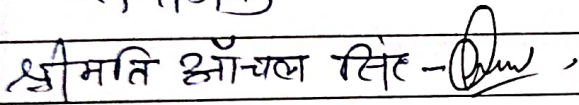 श्रीमति आँचल सिंह -